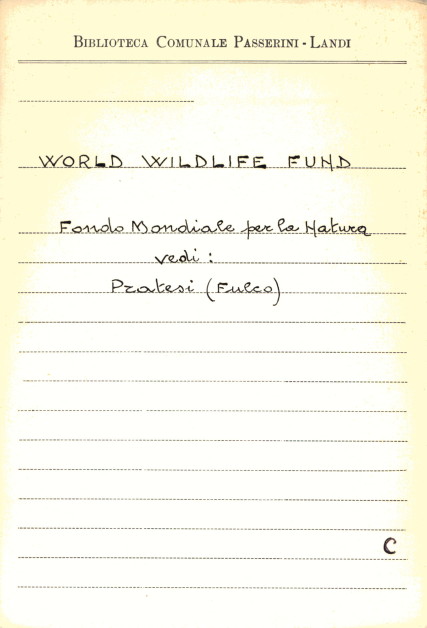 BIBLIOTECA COMUNALE PASSERINI - LANDI
WORLD WILDLIFE FUND
Fondo Mondiale per la Natura
vedi :
Pratesi (Fulco)
C